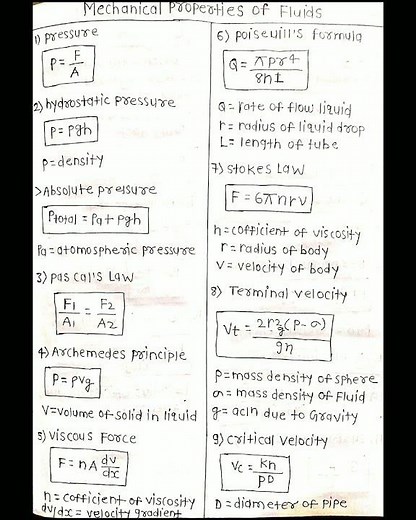 Mechanical Properties of Fluids
1) pressure
P = F/A
2) hydrostatic pressure
P = ρgh
ρ=density
>Absolute pressure
Ptotal = Pa + ρgh
Pa = atomospheric pressure
3) pascal's Law
F1/A1 = F2/A2
4) Archemedes principle
P = ρVg
V=volume of solid in liquid
5) viscous Force
F = η A dv/dx
η = cofficient of viscosity
dv/dx = velocity gradient
6) poiseuill's formula
Q = πpr4/8ηl
Q = rate of flow liquid
r = radius of liquid drop
L = length of tube
7) Stokes Law
F = 6πηrv
η = cofficient of viscosity
r = radius of body
V = velocity of body
8) Terminal velocity
Vt = 2r2g(ρ-σ)/9η
ρ=mass density of sphere
σ = mass density of Fluid
g = acln due to Gravity
9) critical velocity
Vc = kη/ρD
D = diameter of pipe